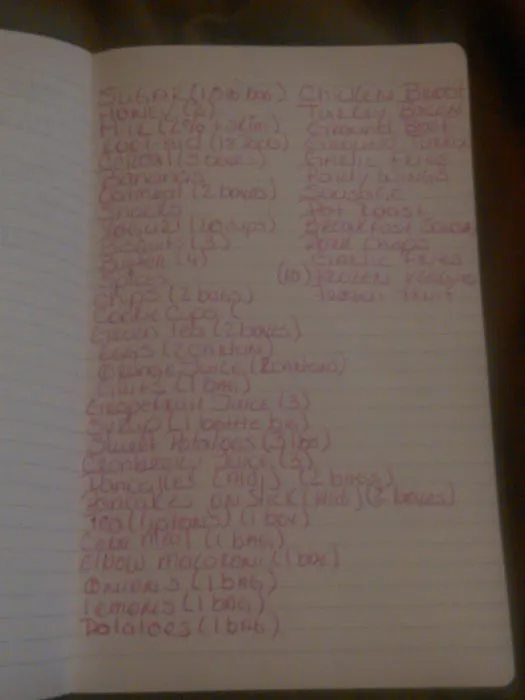 SUGAR (10lb bag)
HONEY (2)
MILK (2% + skim)
Cereal (3 boxes)
Bananas
Oatmeal (2 boxes)
Snacks
Yogurt (20 cups)
Biscuits (3)
Butter (4)
Chips (2 bags)
Cookie Cups (
Green Tea (2 boxes)
EGGS (2 CARTON)
ORANGE JUICE (2 CARTONS)
(1 bag)
Grapefruit Juice (3)
SYRUP (1 bottle big)
Sweet Potatoes (3 lbs)
CRANBERRY JUICE (3)
Pancakes (mini) (2 bags)
Pancakes ON Stick (Midi) (2 boxes)
Tea (liptons) (1 box)
Corn Meal (1 BAG)
Elbow Macoroni (1 box)
ONIONS (1 BAG)
LEMONS (1 BAG)
Potatoes (1 BAG)
Chicken Breast
TURKEY BACON
Ground Beef
Ground Turkey
GARLIC FRIES
PARTY WINGS
Sausage
Pot Roast
Breakfast
PORK Chops
GARLIC FRIES
(10) FROZEN VEGGIES
FROZEN FRUIT